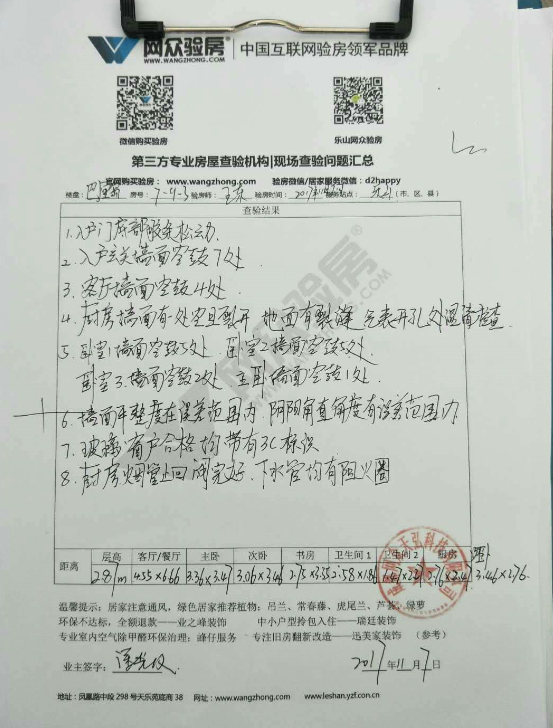 网众验房 中国互联网验房领军品牌
WWW.WANGZHONG.COM
微信购买验房 乐山网众验房
第三方专业房屋查验机构|现场查验问题汇总
官网购买验房：www.wangzhong.com 验房微信/居家服务微信：d2happy
楼盘： 房号：7-4-3 验房师： 验房时间： 服务站点： (市、区、县)
查验结果
1. 入户门底部胶条松动.
2. 入户玄关墙面空鼓7处
3. 客厅墙面空鼓4处.
4. 厨房墙面有一处空且裂开 地面有裂缝 气表开孔处湿请检查
5. 卧室1墙面空鼓5处 卧室2墙面空鼓5处
卧室3墙面空鼓2处 主卧墙面空鼓1处.
6. 墙面平整度在误差范围内 阴阳角直角度有误差范围内
7. 玻璃窗户合格均带有3C标识
8. 厨房烟室止回阀完好. 下水管均有阻火圈
距离 层高 客厅/餐厅 主卧 次卧 书房 卫生间1 卫生间2 厨房
2.87m 4.55×6.66 3.36×3.47 3.06×3.46 2.75×3.55 2.58×1.86 3.46×2.76
温馨提示：居家注意通风，绿色居家推荐植物：吊兰、常春藤、虎尾兰、芦荟、绿萝
环保不达标，全额退款——业之峰装饰 中小户型拎包入住——瑞廷装饰
专业室内空气除甲醛环保治理：峰仔服务 专注旧房翻新改造——迅美家装饰 (参考)
业主签字： 2017年11月7日
地址：凤凰路中段298号天乐苑底商38 网址：www.wangzhong.com www.leshan.yzf.com.cn